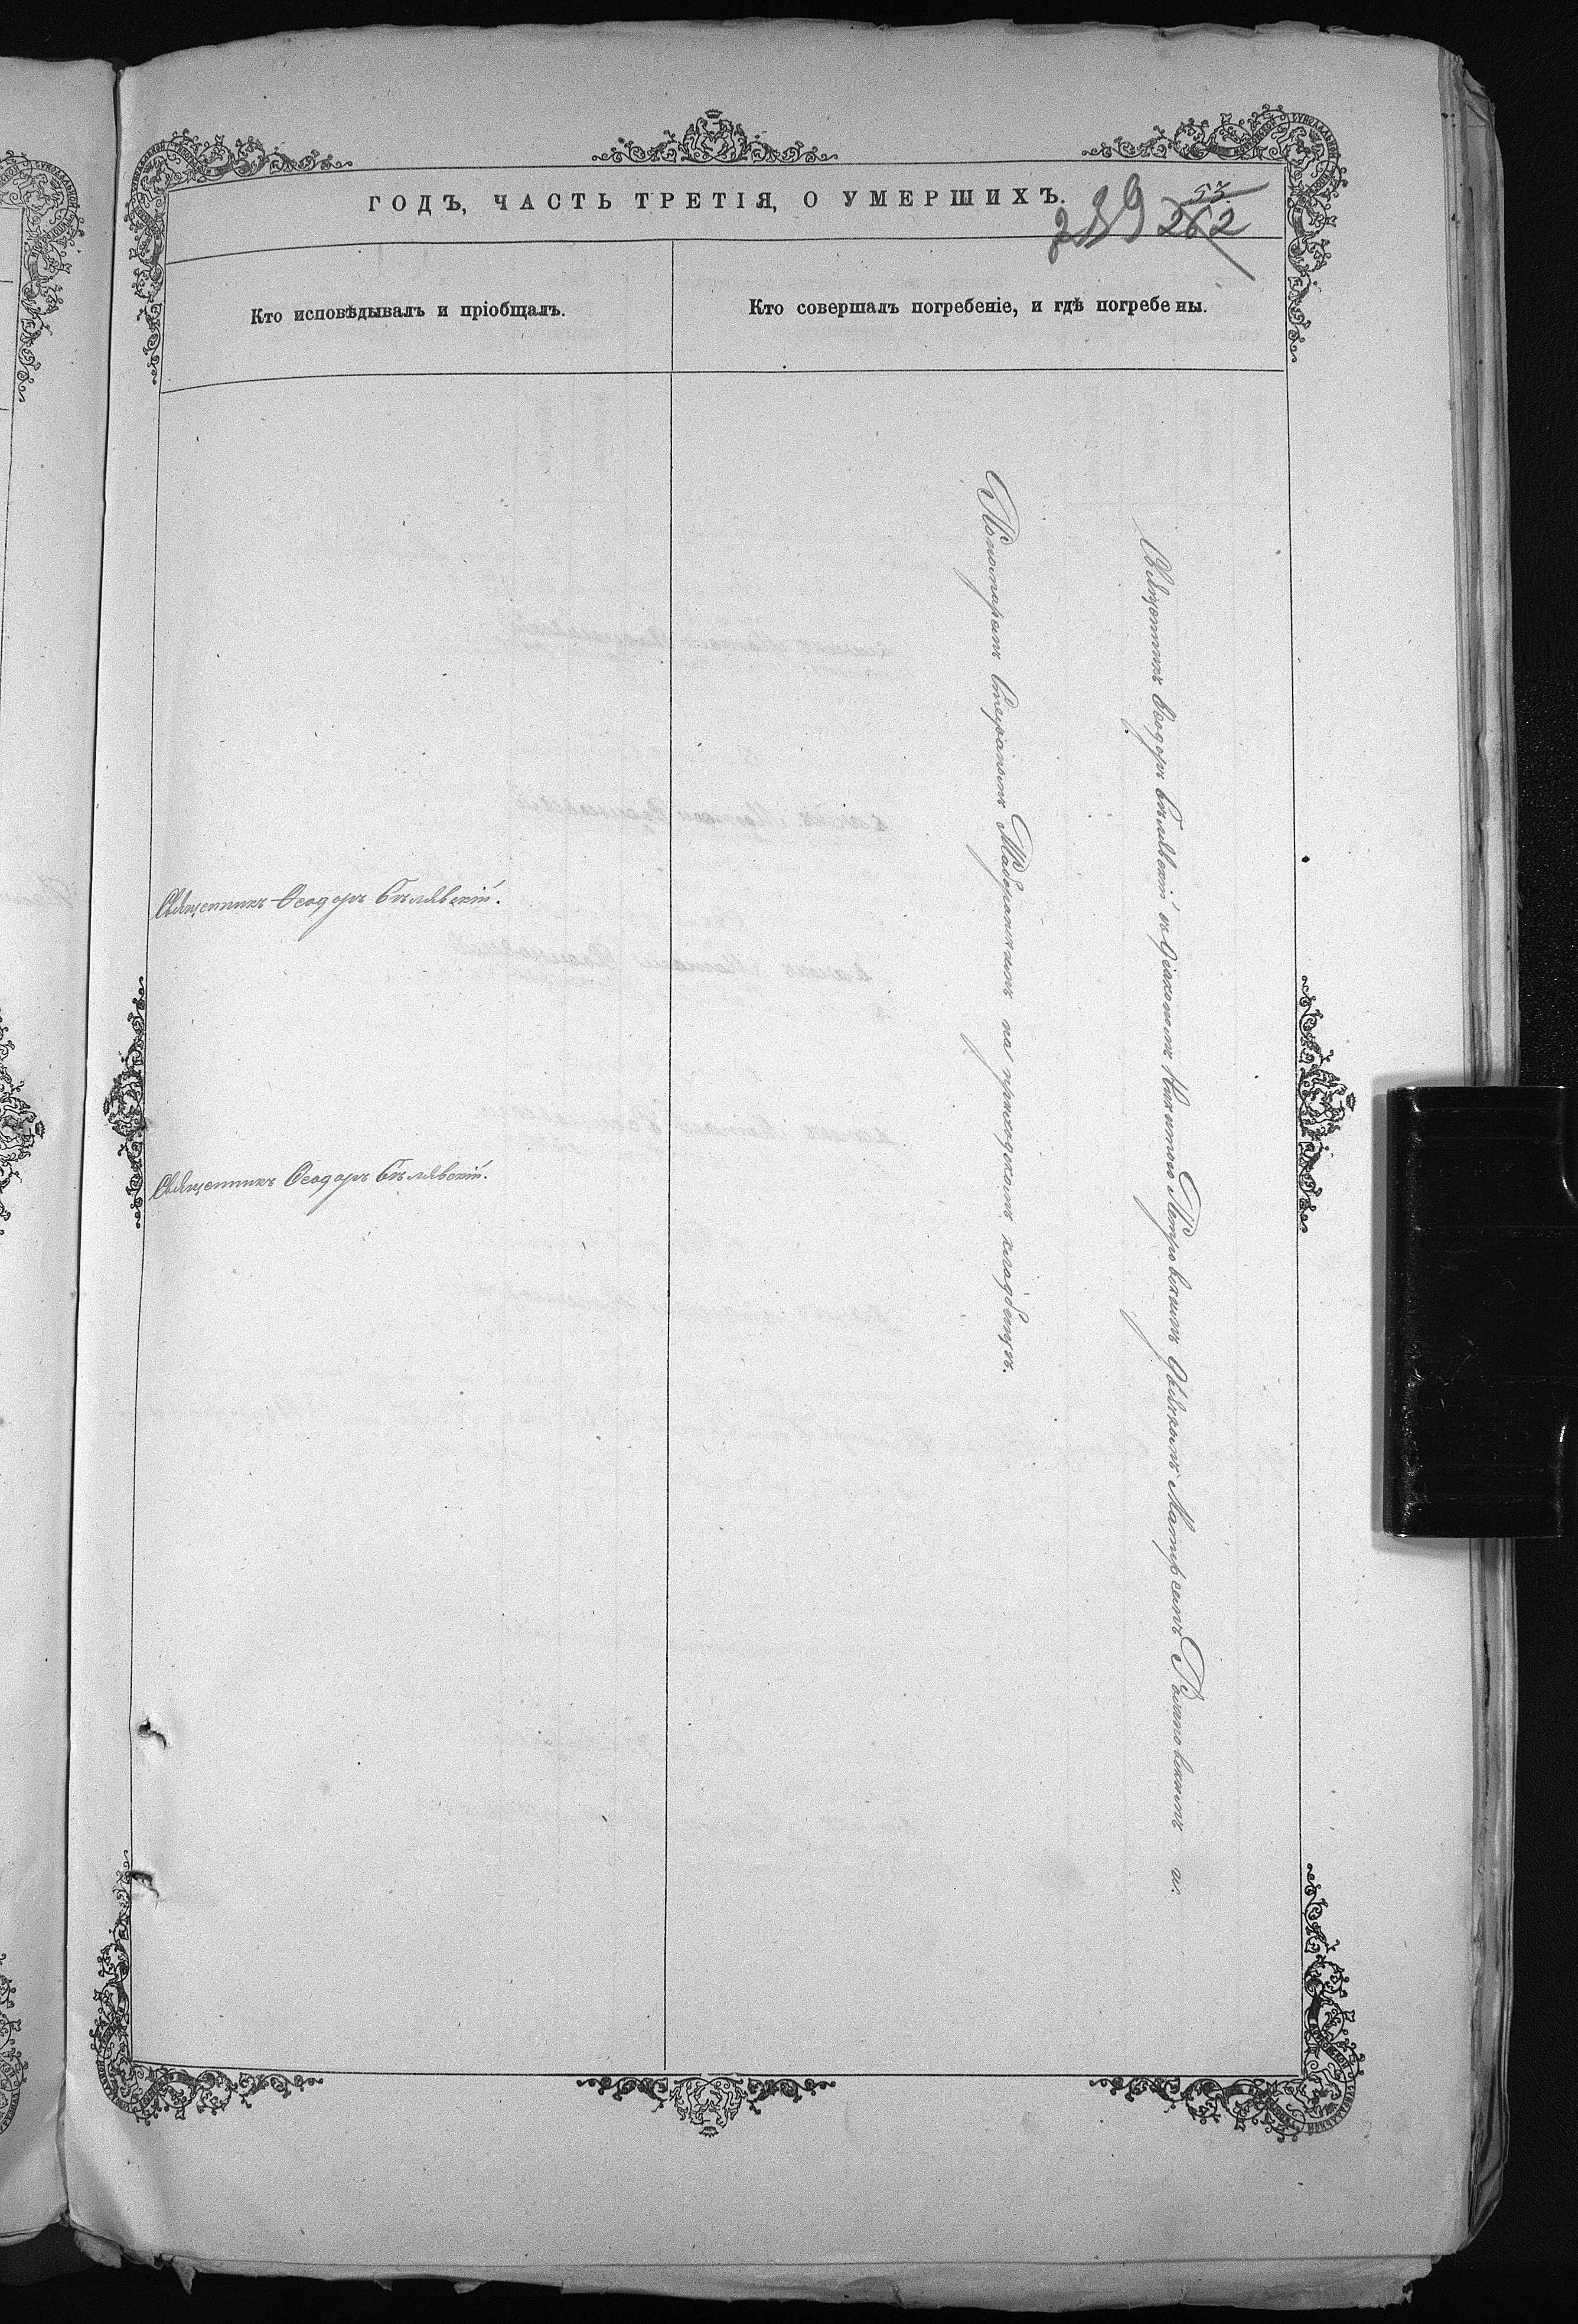 ГОДЪ, ЧАСТЬ ТРЕТІЯ, О УМЕРШИХЪ.
239 262
53.
Кто исповѣдывалъ и пріобщалъ.
Кто совершалъ погребеніе, и гдѣ погребены.
Священникъ Ѳеодоръ Бѣлявскій.
Священникъ Ѳеодоръ Бѣлявскій.
Священникъ Ѳеодоръ Бѣлявскій съ Діакономъ Никитою Петровскимъ Дьячкомъ Романовскимъ и
Пономаремъ Стефаномъ на приходскомъ кладбищѣ.